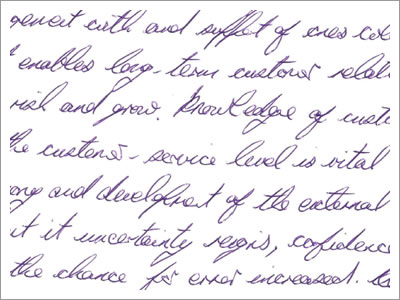 with and support of ones
enables long-term customer
risk and grow. Knowledge of
the customer-service level is vital
and development of the external
it uncertainty reigns, confidence
the chance for error increased.